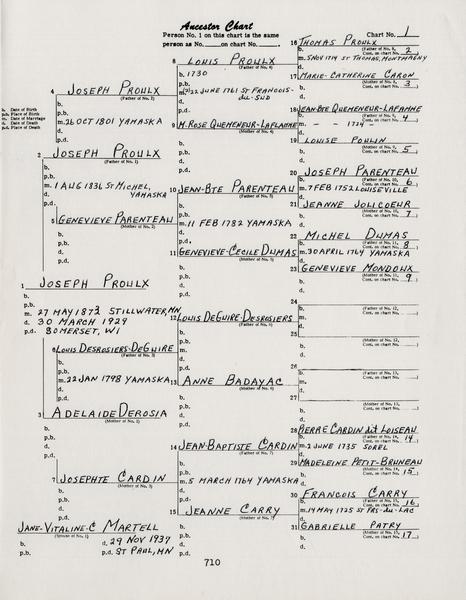 Ancestor Chart
Person No. 1 on this chart is the same
person as No. ___ on chart No. ___.
Chart No. 1
b. Date of Birth
p.b. Place of Birth
m. Date of Marriage
d. Date of Death
p.d. Place of Death
1 JOSEPH PROULX
b.
p.b.
m. 27 MAY 1873 STILLWATER, MN
d. 30 MARCH 1929
p.d. SOMERSET, WI
JANE-VITALINE-C MARTELL
(Spouse of No. 1)
b.
p.b.
d. 29 NOV 1937
p.d. ST PAUL, MN
2 JOSEPH PROULX
(Father of No. 1)
b.
p.b.
m. 1 AUG 1836 ST MICHEL, YAMASKA
d.
p.d.
3 ADELAIDE DEROSIA
(Mother of No. 1)
b.
p.b.
d.
p.d.
4 JOSEPH PROULX
(Father of No. 2)
b.
p.b.
m. 26 OCT 1801 YAMASKA
d.
p.d.
5 GENEVIEVE PARENTEAU
(Mother of No. 2)
b.
p.b.
d.
p.d.
6 LOUIS DESROSIERS-DEGUIRE
(Father of No. 3)
b.
p.b.
m. 22 JAN 1798 YAMASKA
d.
p.d.
7 JOSEPHTE CARDIN
(Mother of No. 3)
b.
p.b.
d.
p.d.
8 LOUIS PROULX
(Father of No. 4)
b. 1730
p.b.
m. (2) 22 JUNE 1761 ST FRANCOIS-du-SUD
d.
p.d.
9 M. ROSE QUEMENEUR-LAFLAMME
(Mother of No. 4)
b.
p.b.
d.
p.d.
10 JEAN-BTE PARENTEAU
(Father of No. 5)
b.
p.b.
m. 11 FEB 1782 YAMASKA
d.
p.d.
11 GENEVIEVE-CECILE DUMAS
(Mother of No. 5)
b.
p.b.
d.
p.d.
12 LOUIS DEGUIRE-DESROSIERS
(Father of No. 6)
b.
p.b.
m.
d.
p.d.
13 ANNE BADAYAC
(Mother of No. 6)
b.
p.b.
d.
p.d.
14 JEAN-BAPTISTE CARDIN
(Father of No. 7)
b.
p.b.
m. 5 MARCH 1764 YAMASKA
d.
p.d.
15 JEANNE CARRY
(Mother of No. 7)
b.
p.b.
d.
p.d.
16 THOMAS PROULX
(Father of No. 8, Cont. on chart No. 2)
b.
m. 5 NOV 1714 ST THOMAS, MONTMAGNY
d.
17 MARIE-CATHERINE CARON
(Mother of No. 8, Cont. on chart No. 3)
b.
d.
18 JEAN-BTE QUEMENEUR-LAFLAMME
(Father of No. 9, Cont. on chart No. 4)
b.
m. - - 1724 -
d.
19 LOUISE POULIN
(Mother of No. 9, Cont. on chart No. 5)
b.
d.
20 JOSEPH PARENTEAU
(Father of No. 10, Cont. on chart No. 6)
b.
m. 7 FEB 1752 LOUISEVILLE
d.
21 JEANNE JOLICOEUR
(Mother of No. 10, Cont. on chart No. 7)
b.
d.
22 MICHEL DUMAS
(Father of No. 11, Cont. on chart No. 8)
b.
m. 30 APRIL 1764 YAMASKA
d.
23 GENEVIEVE MONDOUX
(Mother of No. 11, Cont. on chart No. 9)
b.
d.
24
(Father of No. 12, Cont. on chart No.
b.
m.
d.
25
(Mother of No. 12, Cont. on chart No.
b.
d.
26
(Father of No. 13, Cont. on chart No.
b.
m.
d.
27
(Mother of No. 13, Cont. on chart No.
b.
d.
28 PIERRE CARDIN dit LOISEAU
(Father of No. 14, Cont. on chart No. 14)
b.
m. 2 JUNE 1735 SOREL
d.
29 MADELEINE PETIT-BRUNEAU
(Mother of No. 14, Cont. on chart No. 15)
b.
d.
30 FRANCOIS CARRY
(Father of No. 15, Cont. on chart No. 16)
b.
m. 14 MAY 1725 ST FRS-du-LAC
d.
31 GABRIELLE PATRY
(Mother of No. 15, Cont. on chart No. 17)
b.
d.
710